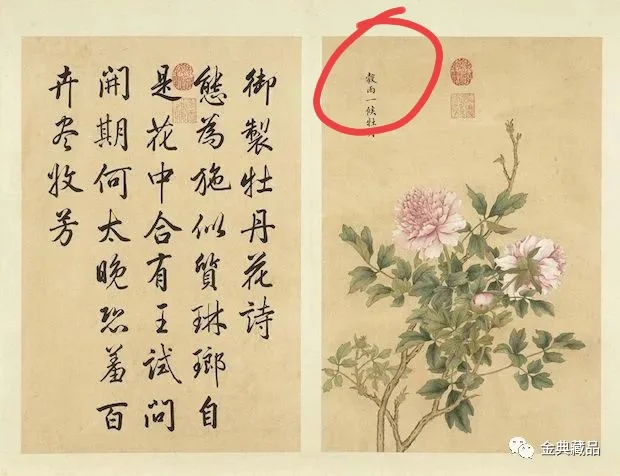 穀雨一候牡丹
御製牡丹花詩
態為施似質琳瑯自
是花中合有王試問
開期何太晚恐羞百
卉尽收芳
金典藏品